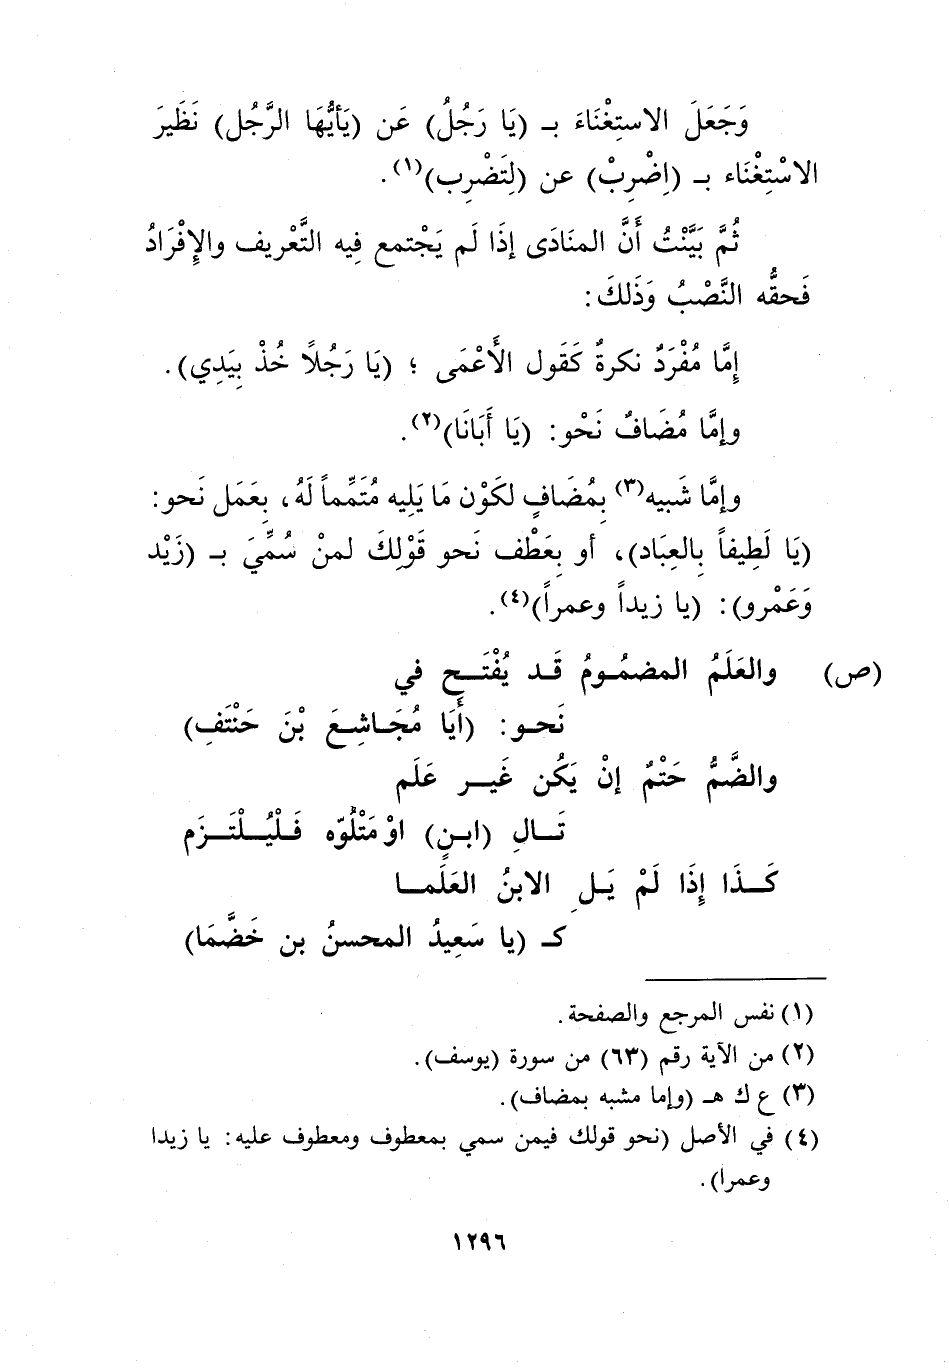 وَجَعَلَ الاستِغْنَاءَ بـ (يَا رَجُلُ) عَن (يَأيُّهَا الرَّجُل) نَظَيرَ
الاسْتِغْنَاء بـ (اِضْرِبْ) عن (لِتَضْرِب)(١).
ثُمَّ بَيَّنْتُ أَنَّ المنَادَى إذَا لَم يَجْتمع فِيه التَّعْريف والإفْرَادُ
فَحقُّه النَّصْبُ وَذَلكَ:
إمَّا مُفْرَدٌ نكرةٌ كَقَول الأَعْمَى ؛ (يَا رَجُلاً خُذْ بيَدِي).
وإمَّا مُضَافٌ نَحْو: (يَا أَبَانَا)(٢).
وإمَّا شَبيه(٣) بِمُضَافٍ لكَوْن مَا يَلِيه مُتَمِّماً لَهُ، بعَمَل نَحو:
(يَا لَطِيفاً بالعِبَاد)، أو بعَطْف نَحو قَوْلِكَ لمنْ سُمِّيَ بـ (زَيْد
وَعَمْرو): (يا زيداً وعمراً)(٤).
(ص) والعَلَمُ المضمُـومُ قَـد يُفْتَـح في
نَحـو: (أَيَا مُجَـاشِـعَ بْنَ حَنْتَفِ)
والضَّمُّ حَتْمٌ إنْ يَكُن غَيـر عَلَم
تَـالِ (ابـنٍ) اوْ مَتْلُوّه فَـلْيُـلْتَـزَم
كَـذَا إِذَا لَمْ يَـلِ الابنُ العَلَمـا
كـ (يا سَعِيدُ المحسنُ بن خَضَّمَا)
(١) نفس المرجع والصفحة.
(٢) من الآية رقم (٦٣) من سورة (يوسف).
(٣) ع ك هـ (وإما مشبه بمضاف).
(٤) في الأصل (نحو قولك فيمن سمي بمعطوف ومعطوف عليه: يا زيدا
وعمرا).
١٢٩٦